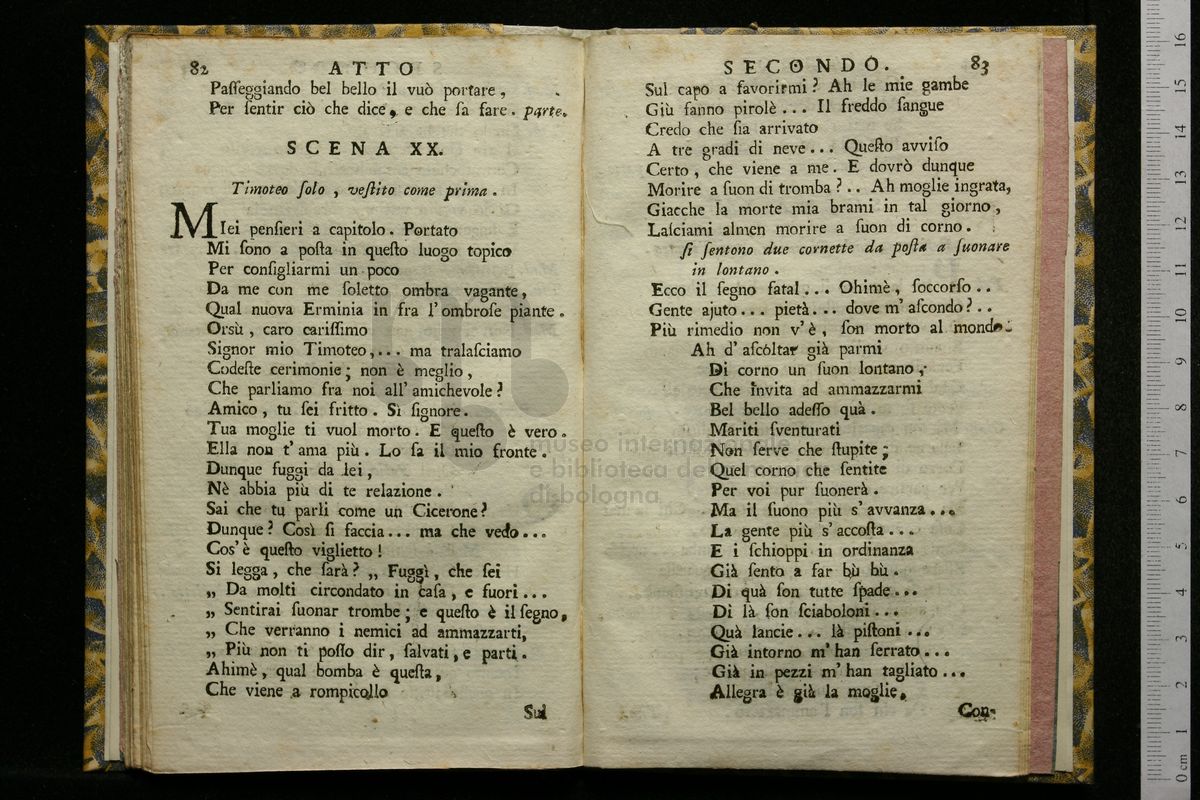 82 ATTO
Paſſeggiando bel bello il vuò portare,
Per ſentir ciò che dice, e che ſa fare. parte.
SCENA XX.
Timoteo ſolo, veſtito come prima.
MIei penſieri a capitolo. Portato
Mi ſono a poſta in queſto luogo topico
Per conſigliarmi un poco
Da me con me ſoletto ombra vagante,
Qual nuova Erminia in fra l'ombroſe piante.
Orsù, caro cariſſimo
Signor mio Timoteo,... ma tralaſciamo
Codeſte cerimonie; non è meglio,
Che parliamo fra noi all'amichevole?
Amico, tu ſei fritto. Sì ſignore.
Tua moglie ti vuol morto. E queſto è vero.
Ella non t'ama più. Lo ſa il mio fronte.
Dunque fuggi da lei,
Nè abbia più di te relazione.
Sai che tu parli come un Cicerone?
Dunque? Così ſi faccia... ma che vedo...
Cos'è queſto viglietto!
Si legga, che ſarà? „ Fuggì, che ſei
„ Da molti circondato in caſa, e fuori...
„ Sentirai ſuonar trombe; e queſto è il ſegno,
„ Che verranno i nemici ad ammazzarti,
„ Più non ti poſſo dir, ſalvati, e parti.
Ahimè, qual bomba è queſta,
Che viene a rompicollo
Sul
SECONDO. 83
Sul capo a favorirmi? Ah le mie gambe
Giù fanno pirolè... Il freddo ſangue
Credo che ſia arrivato
A tre gradi di neve... Queſto avviſo
Certo, che viene a me. E dovrò dunque
Morire a ſuon di tromba?.. Ah moglie ingrata,
Giacche la morte mia brami in tal giorno,
Laſciami almen morire a ſuon di corno.
ſi ſentono due cornette da poſta a ſuonare
in lontano.
Ecco il ſegno fatal... Ohimè, ſoccorſo..
Gente ajuto... pietà... dove m'aſcondo?..
Più rimedio non v'è, ſon morto al mondo.
Ah d'aſcoltar già parmi
Di corno un ſuon lontano,
Che invita ad ammazzarmi
Bel bello adeſſo quà.
Mariti ſventurati
Non ſerve che ſtupite;
Quel corno che ſentite
Per voi pur ſuonerà.
Ma il ſuono più s'avvanza...
La gente più s'accoſta...
E i ſchioppi in ordinanza
Già ſento a far bù bù.
Di quà ſon tutte ſpade...
Di là ſon ſciaboloni...
Quà lancie... là piſtoni...
Già intorno m'han ſerrato...
Già in pezzi m'han tagliato...
Allegra è già la moglie,
Con-
museo internazionale
e biblioteca della
di bologna
0 cm 1 2 3 4 5 6 7 8 9 10 11 12 13 14 15 16